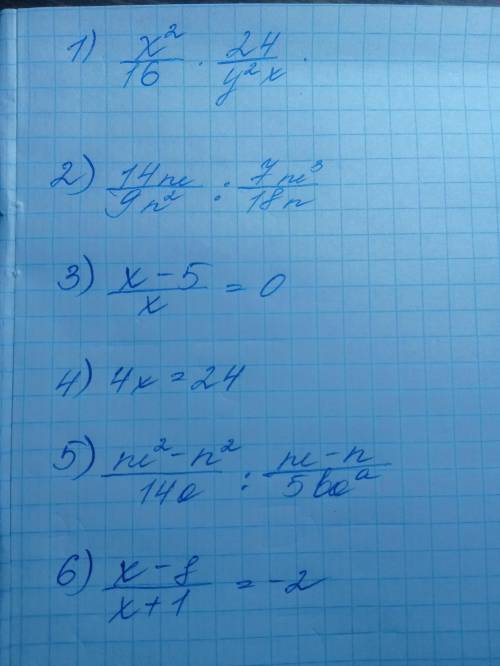 1) x²/16 · 24/y²x
2) 14m/9n² : 7m³/18n
3) x-5/x = 0
4) 4x = 24
5) m²-n²/14a : m-n/
6) x-8/x+1 = -2